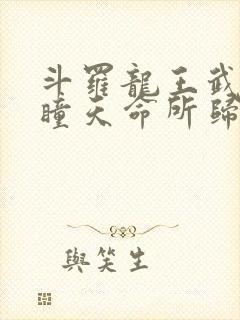 斗羅龍王武
瞳天命所歸
與笑生